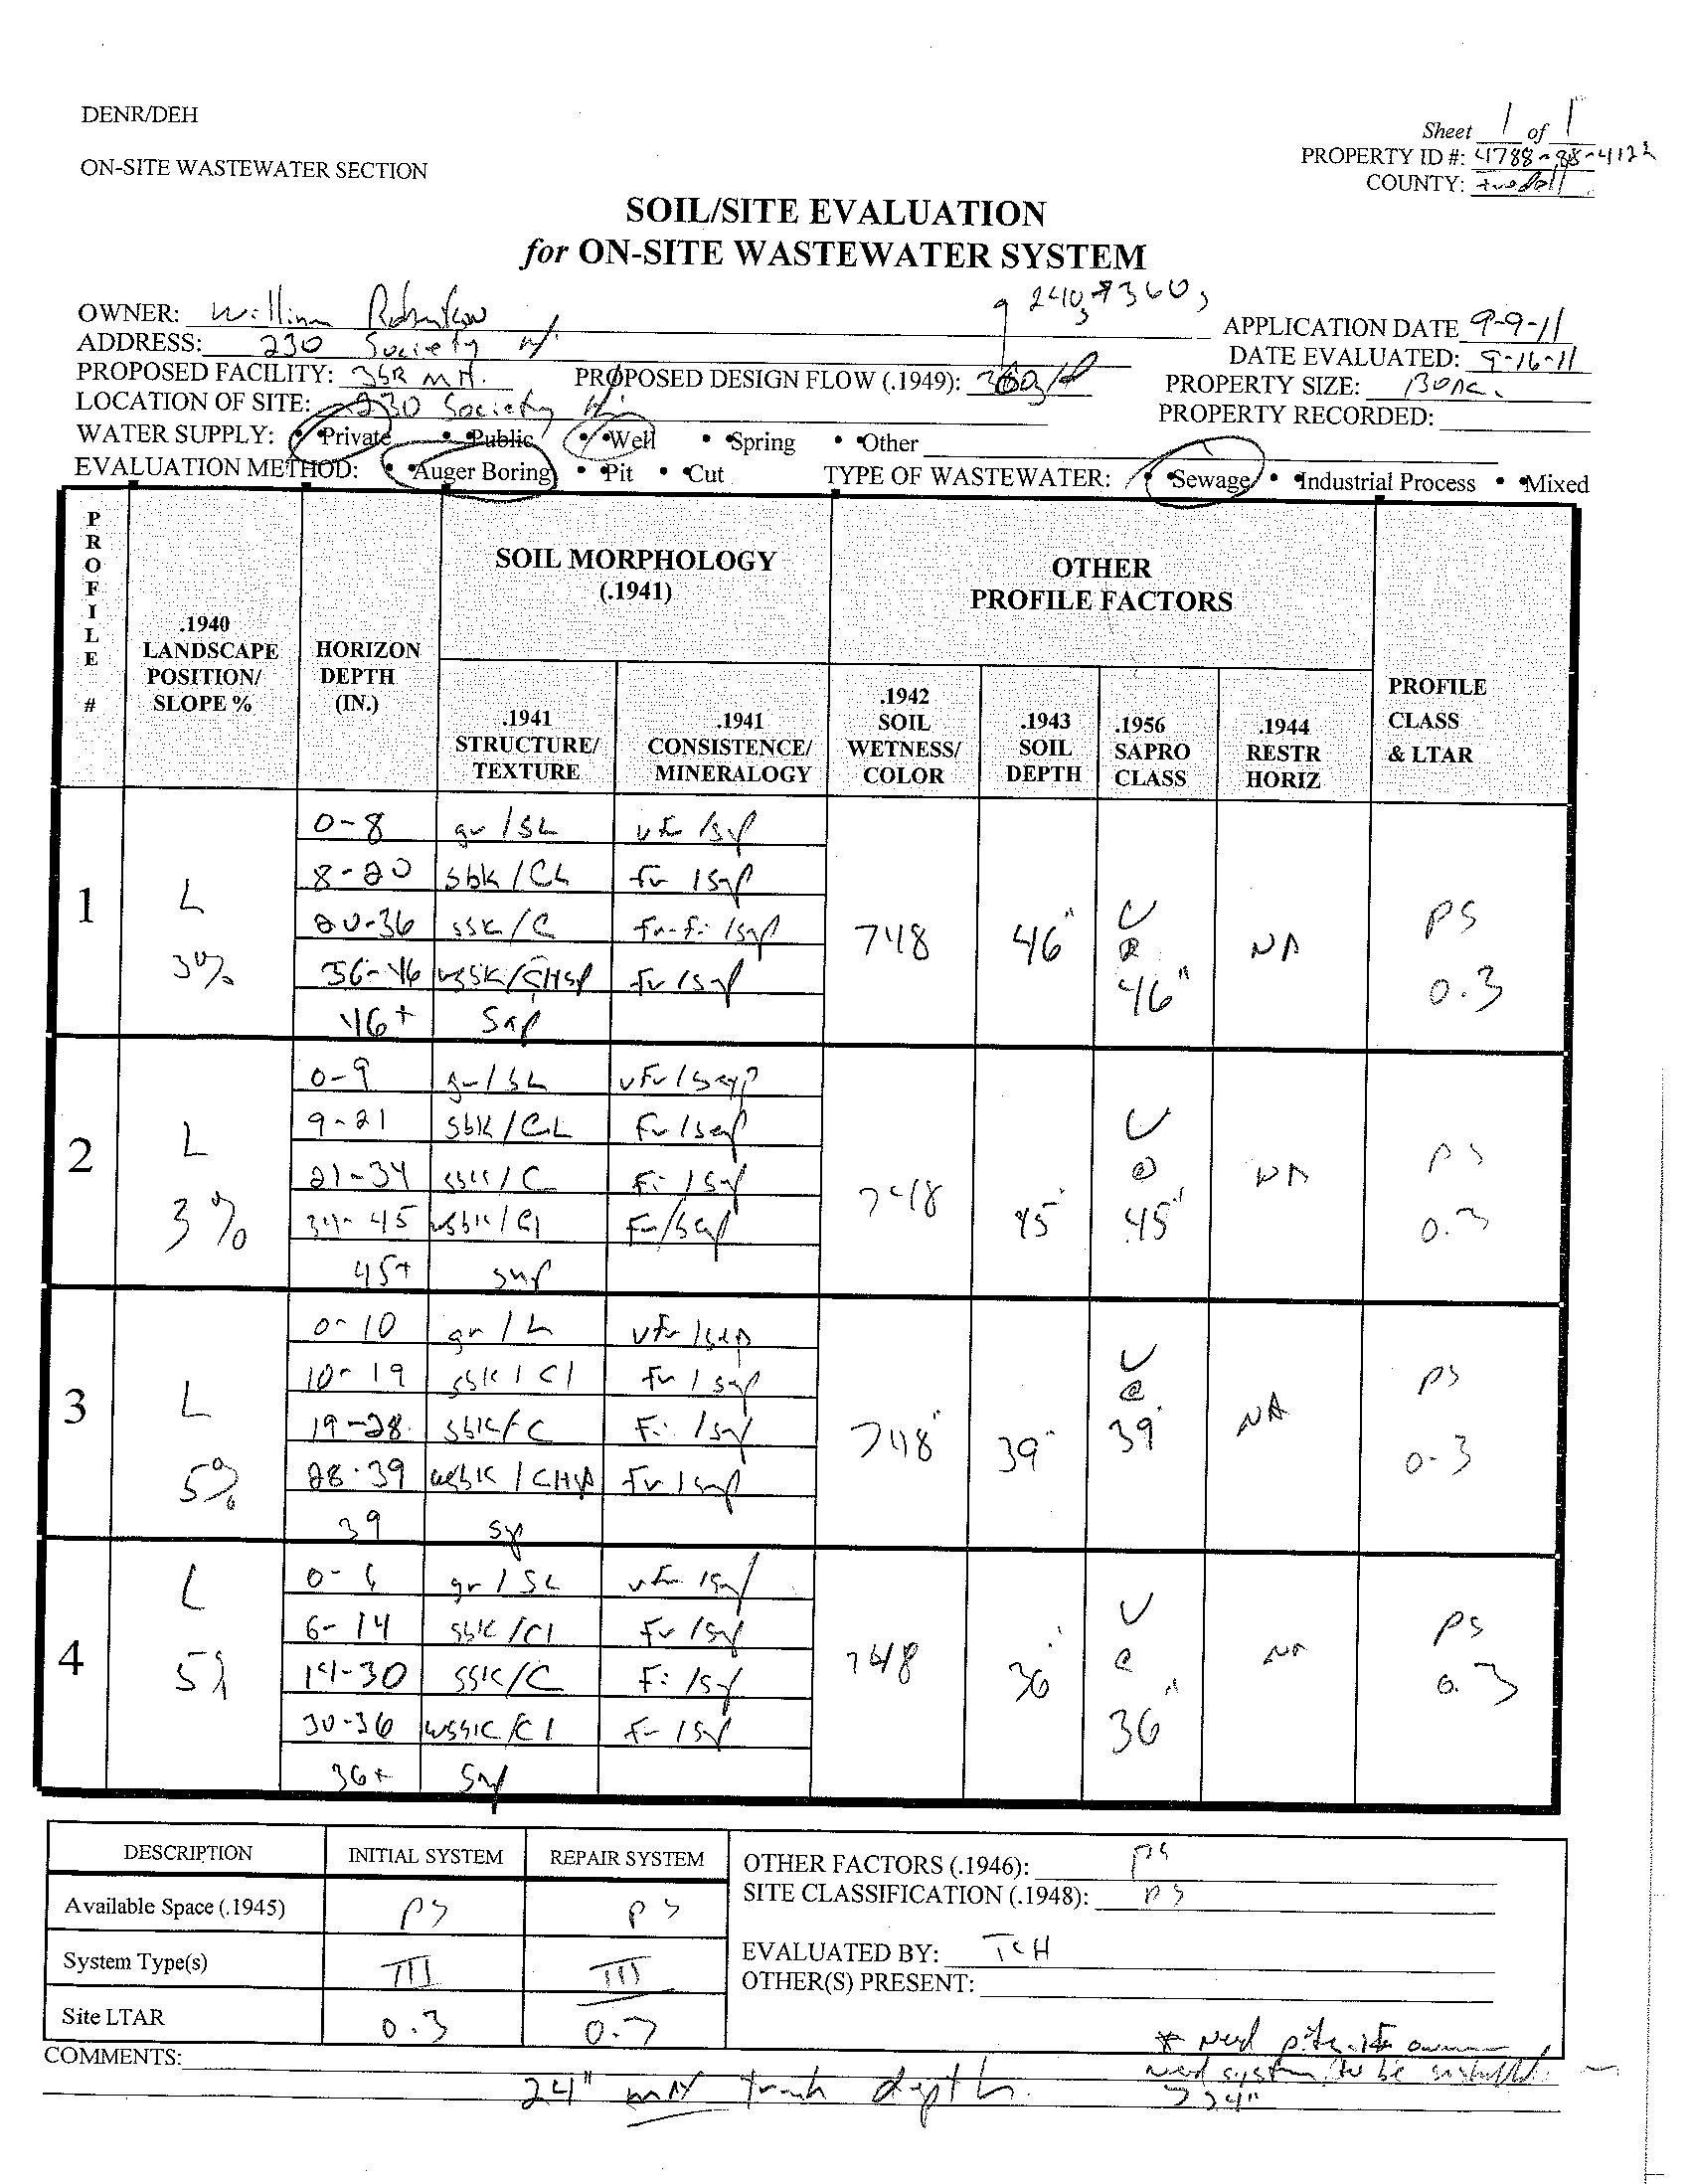 DENR/DEH
Sheet 1 of 1
PROPERTY ID #: 4788-88-4122
ON-SITE WASTEWATER SECTION
COUNTY: Iredell
SOIL/SITE EVALUATION
for ON-SITE WASTEWATER SYSTEM
OWNER: William
240, 360,
APPLICATION DATE 9-9-11
ADDRESS: 230 Society
DATE EVALUATED: 9-16-11
PROPOSED FACILITY: 3BR M.H. PROPOSED DESIGN FLOW (.1949): 360
PROPERTY SIZE:
LOCATION OF SITE: 230 Society
PROPERTY RECORDED:
WATER SUPPLY: • Private • Public • Well • Spring • Other
EVALUATION METHOD: • Auger Boring • Pit • Cut TYPE OF WASTEWATER: • Sewage • Industrial Process • Mixed
PROFILE #
.1940 LANDSCAPE POSITION/ SLOPE %
HORIZON DEPTH (IN.)
SOIL MORPHOLOGY (.1941)
OTHER PROFILE FACTORS
.1941 STRUCTURE/ TEXTURE
.1941 CONSISTENCE/ MINERALOGY
.1942 SOIL WETNESS/ COLOR
.1943 SOIL DEPTH
.1956 SAPRO CLASS
.1944 RESTR HORIZ
PROFILE CLASS & LTAR
1
L 3%
0-8 gr/SL vfr/
8-20 sbk/CL fr/
20-36 SBK/C fr-fi/
36-46 fr/
46+ Sap
748 46" U @ 46" NA PS 0.3
2
L 3%
0-9 gr/SL vfr/
9-21 sbk/CL Fr/
21-34 SBK/C Fi/
34-45 wsbk/Cl Fr/
45+ sap
748 45" U @ 45" NA PS 0.3
3
L 5%
0-10 gr/L vfr/
10-19 SBK/Cl fr/
19-28 sbk/C Fi/
28-39 wsbk/ fr/
39 sap
748 39" U @ 39" NA PS 0-3
4
L 5%
0-6 gr/SL vfr/
6-14 sbk/Cl Fr/
14-30 SBK/C Fi/
30-36 wSBK/Cl fr/
36+ Sap
748 36" U @ 36" NA PS 0.3
DESCRIPTION INITIAL SYSTEM REPAIR SYSTEM
OTHER FACTORS (.1946): PS
SITE CLASSIFICATION (.1948): PS
Available Space (.1945) PS PS
EVALUATED BY: TCH
System Type(s) III III
OTHER(S) PRESENT:
Site LTAR 0.3 0.3
* Need pits if owner
COMMENTS:
need system to be installed
24" MAX trench depth.
> 24"